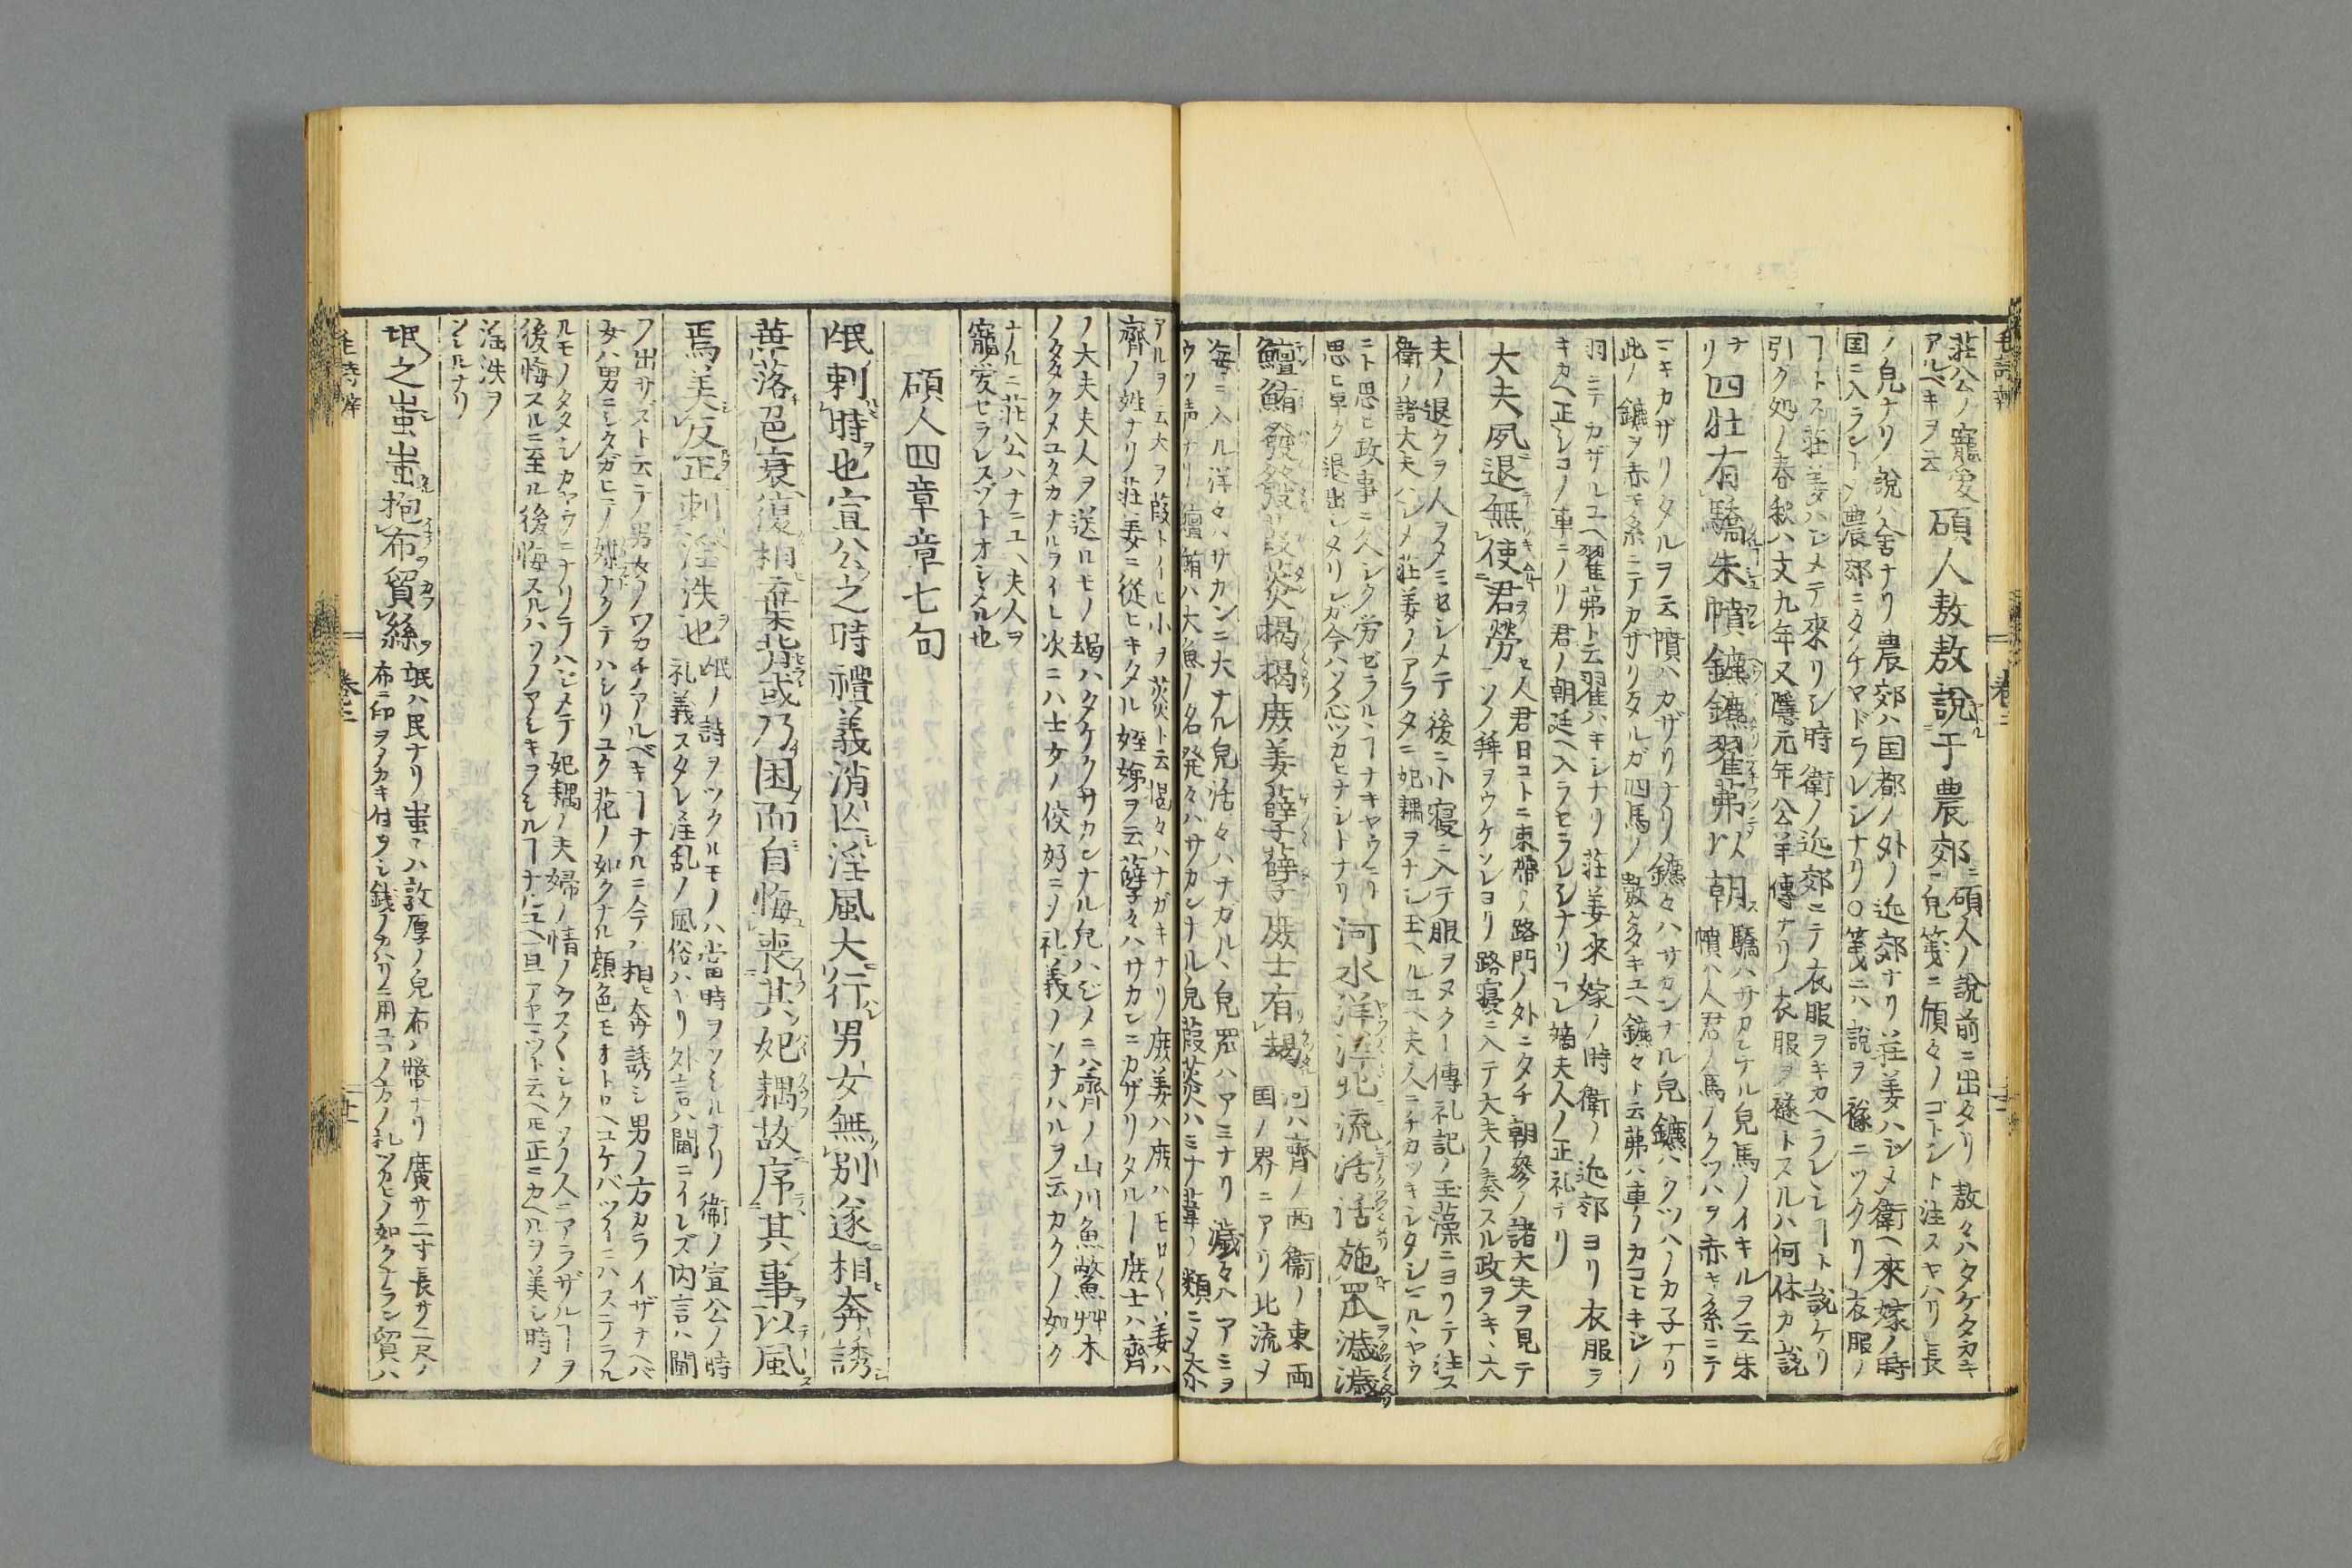 荘公ノ寵愛
アルベキヲ云
碩人敖敖說于農郊
碩人ノ說前ニ出タリ敖々ハタケタカキ
皃箋ニ頎々ノゴトシト注スキハリ長
ノ皃ナリ說ハ舍ナリ農郊ハ国都ノ外ノ近郊ナリ荘姜ハジメ衛ヘ來嫁ノ時
国ニ入ラントメ農郊ニタケマドラレシナリ○箋ニハ說ヲ襚ニツクリ衣服ノ
ヿトス荘姜ハジメテ來リシ時衛ノ近郊ニテ衣服ヲキカヘラレシヿト說ケリ
引ク処ノ春秋ハ文九年又隱元年公羊傳ナリ衣服ヲ襚トスルハ何休カ說
ナ
リ
四牡有驕朱幩鑣鑣翟茀以朝
驕ハサカンナル皃馬ノイキルヲ云朱
幩ハ人君ノ馬ノクツハヲ赤キ糸ニテ
マキカザリタルヲ云幩ハカザリナリ鑣々ハサカンナル皃鑣ハクツハノカ子ナリ
此ノ鑣ヲ赤キ糸ニテカザリタルガ四馬ノ數々タキユヘ鑣々ト云茀ハ車ノカコヒキジノ
羽ニテカザルユヘ翟茀ト云翟ハキジナリ荘姜來嫁ノ時衛ノ近郊ヨリ衣服ヲ
キカヘ正シコノ車ニノリ君ノ朝廷ヘ入ラセラレシナリコレ嫡夫人ノ正礼ナリ
大夫夙退無使君勞
人君日コトニ束帶ノ路門ノ外ニタチ朝參ノ諸大夫ヲ見テ
ソノ拜ヲウケソレヨリ路寢ニ入テ大夫ノ奏スル政ヲキヽ大
夫ノ退クヲ人ヲメミセシメテ後ニ小寢ニ入テ服ヲヌクヿ傳礼記ノ玉藻ニヨリテ注ス
衛ノ諸大夫ハジメ荘姜ノアラタニ妃耦ヲナシ玉ヘルユヘ夫人ニチカツキシタシミルヽヤウ
ニト思ヒ政事ニ久シク労ゼラルヽヿナキヤウニメ
思ヒ早ク退出シタリシガ今ハソノ心ツカヒナシトナリ
河水洋洋北流活活施罛濊濊
鱣鮪發發葭菼揭揭庶姜孽孽庶士有朅
河ハ齊ノ西衞ノ東両
国ノ界ニアリ北流ヲ
海ニ入ル洋々ハサカンニ大ナル皃活々ハナガルヽ皃罛ハアミナリ濊々ハアミヲ
ウツ声ナリ鱣鮪ハ大魚ノ名発々ハサカンナル皃葭菼ハミナ葦ノ類ニメ大
アルヲ云大ヲ葭トイヒ小ヲ菼ト云揭々ハナガキナリ庶姜ハ庶ハモロ〱姜ハ
齊ノ姓ナリ荘姜ニ從ヒキタル姪娣ヲ云孽々ハサカンニカザリタルヿ庶士ハ齊
ノ大夫夫人ヲ送ルモノ朅ハタケクサカンナル皃ハジメニハ齊ノ山川魚鱉艸木
ノタクメユタカナルヲイヒ次ニハ士女ノ佼好ニメ礼義ノソナハルヲ云カクノ如ク
ナルニ荘公ハナニユヘ夫人ヲ
寵愛セラレズゾトオシメル也
碩人四章章七句
氓刺時也宣公之時禮義消亾淫風大行男女無別遂相奔誘
華落色衰復相棄背或乃困而自悔喪其妃耦故序其事以風
焉美反正刺淫泆也
氓ノ詩ヲツクルモノハ當時ヲソシルナリ衞ノ宣公ノ時
礼義スタレ淫乱ノ風俗ハヤリ外言ハ閫ニイレズ內言ハ閫
ヲ出サズト云テ男女ノワカチノアルベキヿナルニ今ハ相奔誘シ男ノ方カライザナヘバ
女ハ男ニシタガヒテ媒ナクテハシリユク花ノ如クナル顔色モオトロヘユケバツイニハステラル
ルモノタタシカヤウニナリテハジメテ妃耦ノ夫婦ノ情ノウス〱シクソノ人ニアラザルヿヲ
後悔スルニ至ル後悔スルハソノアシキヲシルヿナルユヘ一旦アヤマツト云ヘ𪜈正ニカヘルヲ美シ時ノ
淫泆ヲ
ソシルナリ
氓之蚩蚩抱布貿絲
氓ハ民ナリ蚩々ハ敦厚ノ皃布ノ幣ナリ廣サ二寸長サ二尺ノ
布ニ印ヲノカキ付ヲシ錢ノカハリニ用ユコノ方ノ札ツカヒノ如クナラン貿ハ
毛詩辨
卷三